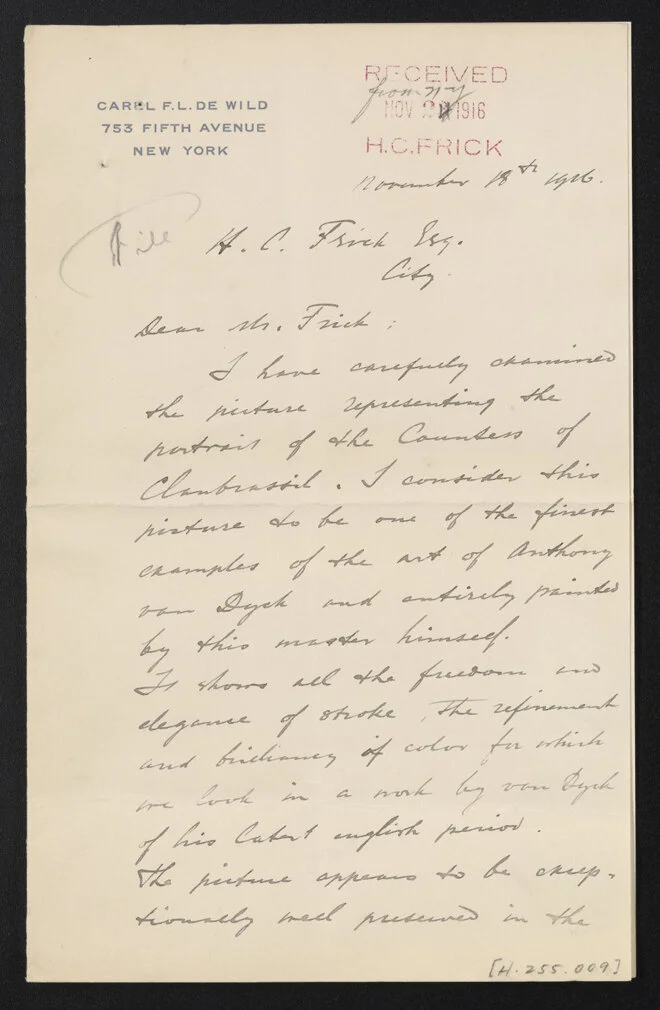 CAREL F.L. DE WILD
753 FIFTH AVENUE
NEW YORK
RECEIVED
from NY
NOV 21 1916
H.C. FRICK
November 18th 1916.
File
H. C. Frick Esq.
City.
Dear Mr. Frick :
I have carefully examined
the picture representing the
portrait of the Countess of
Clanbrassil. I consider this
picture to be one of the finest
examples of the art of Anthony
van Dyck and entirely painted
by this master himself.
It shows all the freedom and
elegance of stroke, the refinement
and brilliancy of color for which
we look in a work by van Dyck
of his latest english period.
The picture appears to be excep-
tionally well preserved in the
[H.255.009]